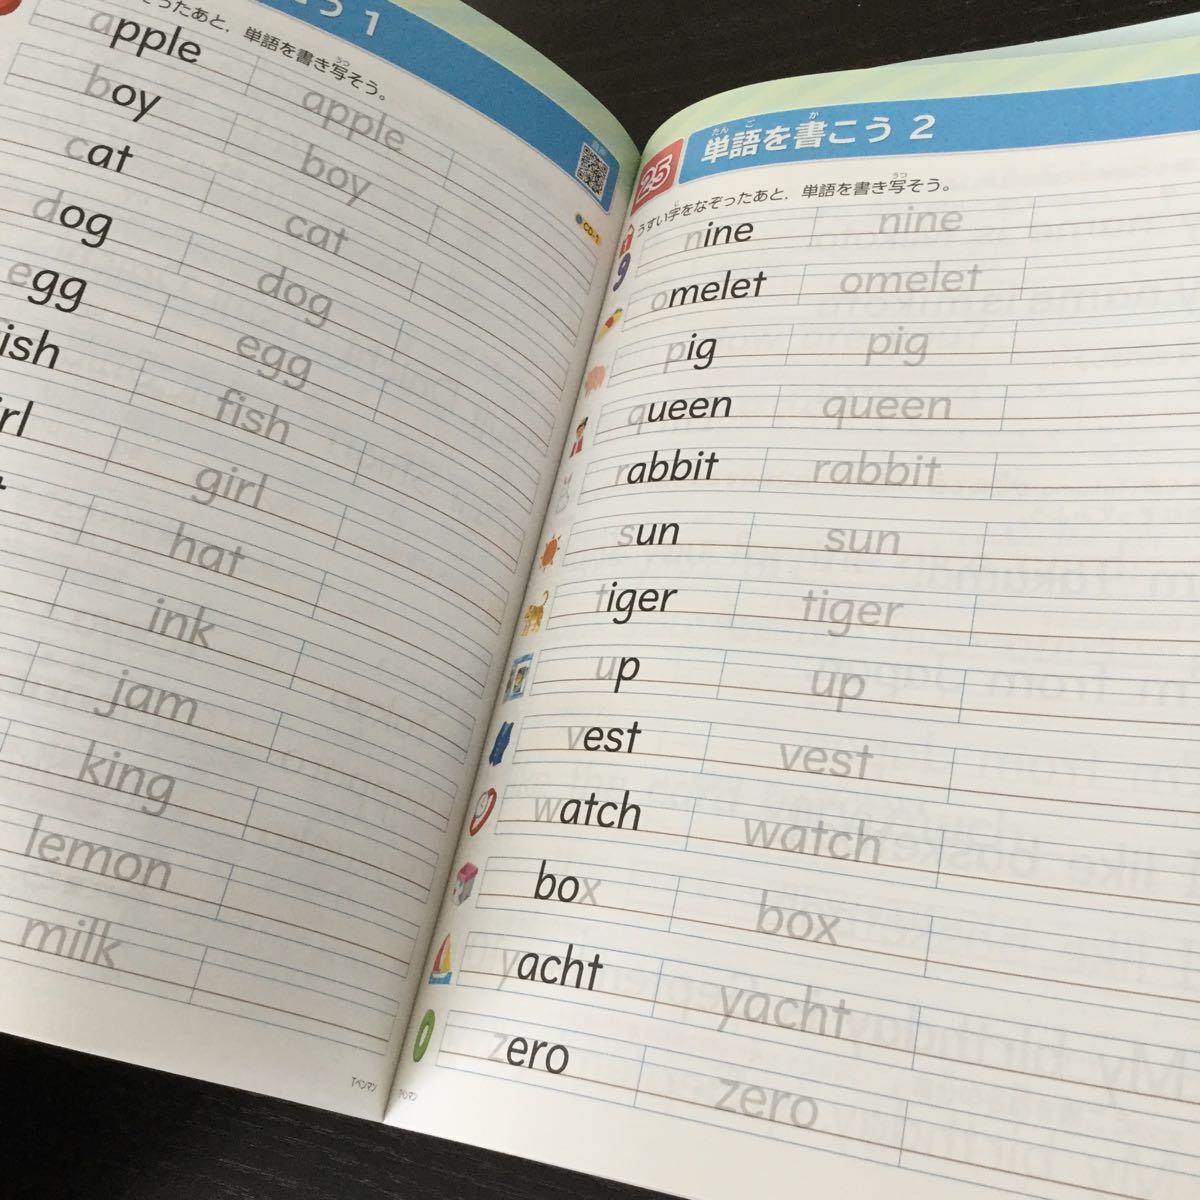 こう 1
ぞったあと，単語を書き写そう。
うつ
音声
CD-1
apple apple
boy boy
cat cat
dog dog
egg egg
fish fish
irl girl
hat
ink
jam
king
lemon
milk
Tペンマン
25
たん ご か
単語を書こう 2
じ うつ
うすい字をなぞったあと，単語を書き写そう。
9
nine nine
omelet omelet
pig pig
queen queen
rabbit rabbit
sun sun
tiger tiger
up up
vest vest
watch watch
box box
yacht yacht
0
zero zero
Tペンマン